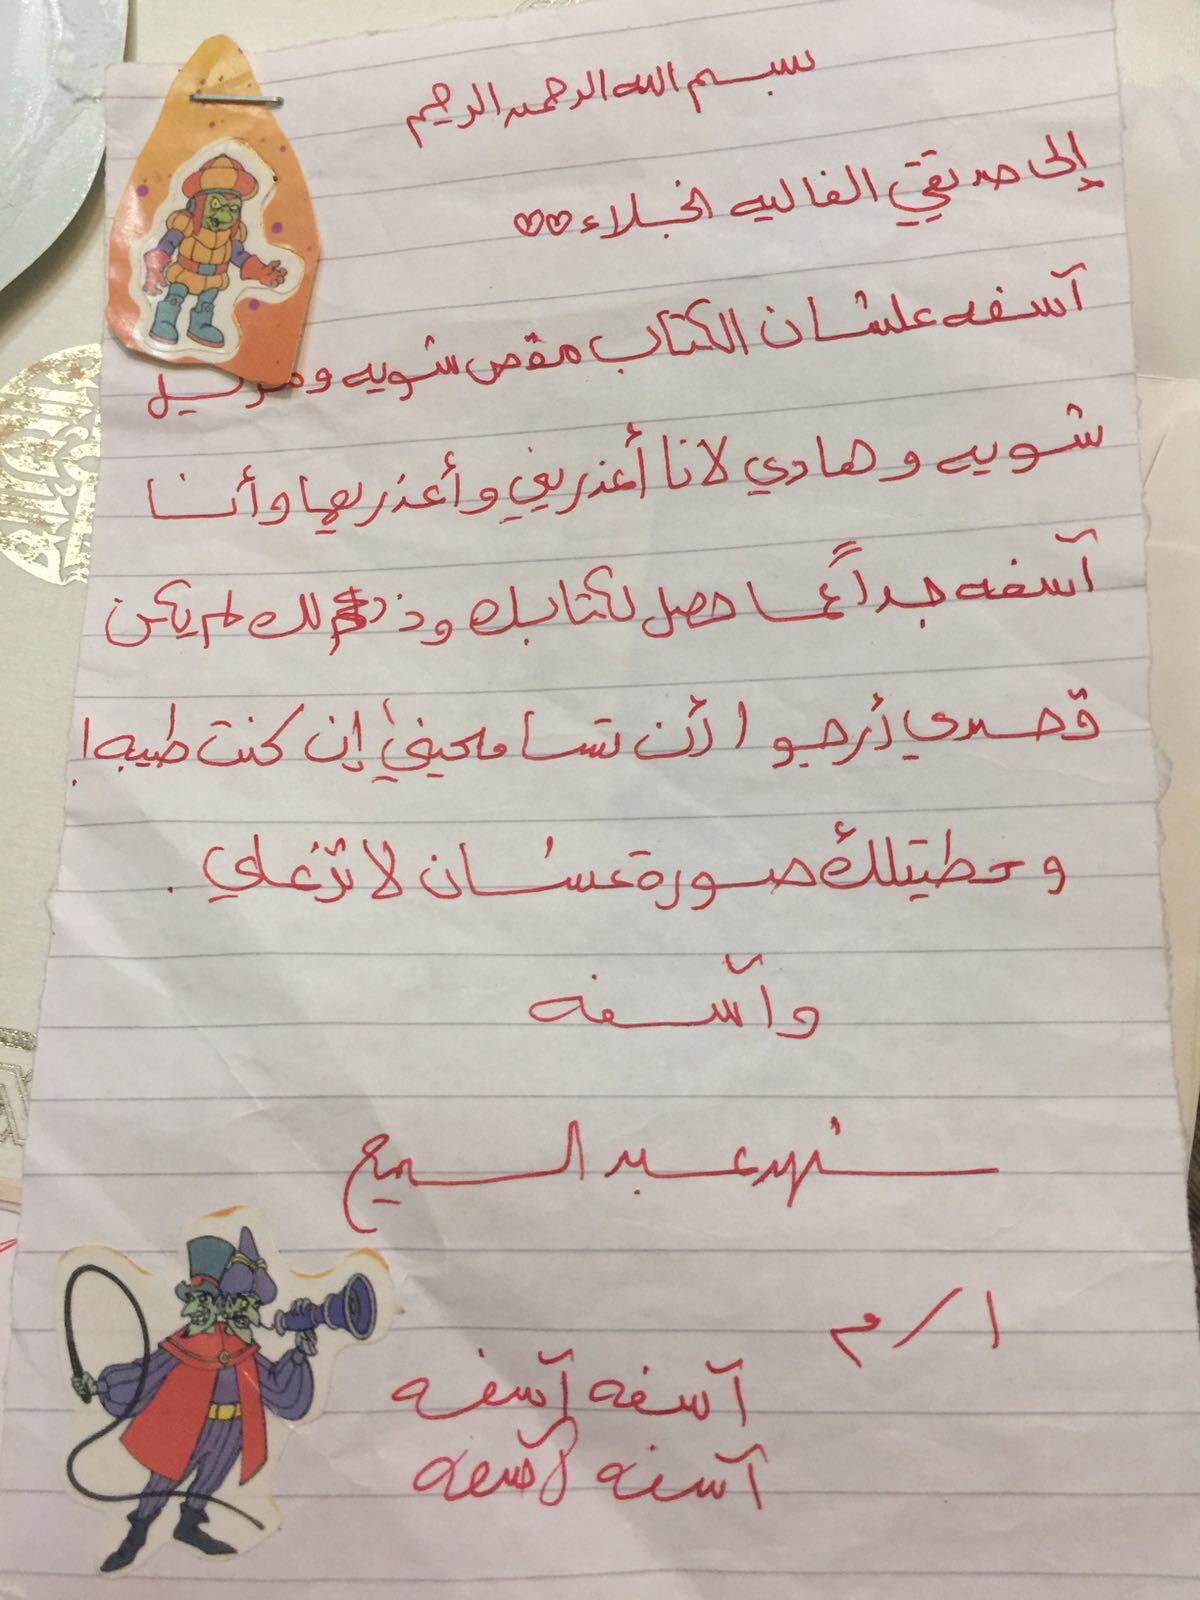 بسم الله الرحمن الرحيم
إلى صديقتي الغاليه الخبلاء
آسفه علشان الكتاب مقص شويه و
شويه وهادي لانا أعذريني وأعذريها وأنا
آسفه جداً عما حصل لكتابك وذ لك لم يكن
قصدي أرجو ا أن تسا محيني إن كنت طيبه !
وحطيتلك صورة عشان لا تزعلي .
وآسفه
شهد عبد السميع
ا / م
آسفه آسفه
آسفه آسفه